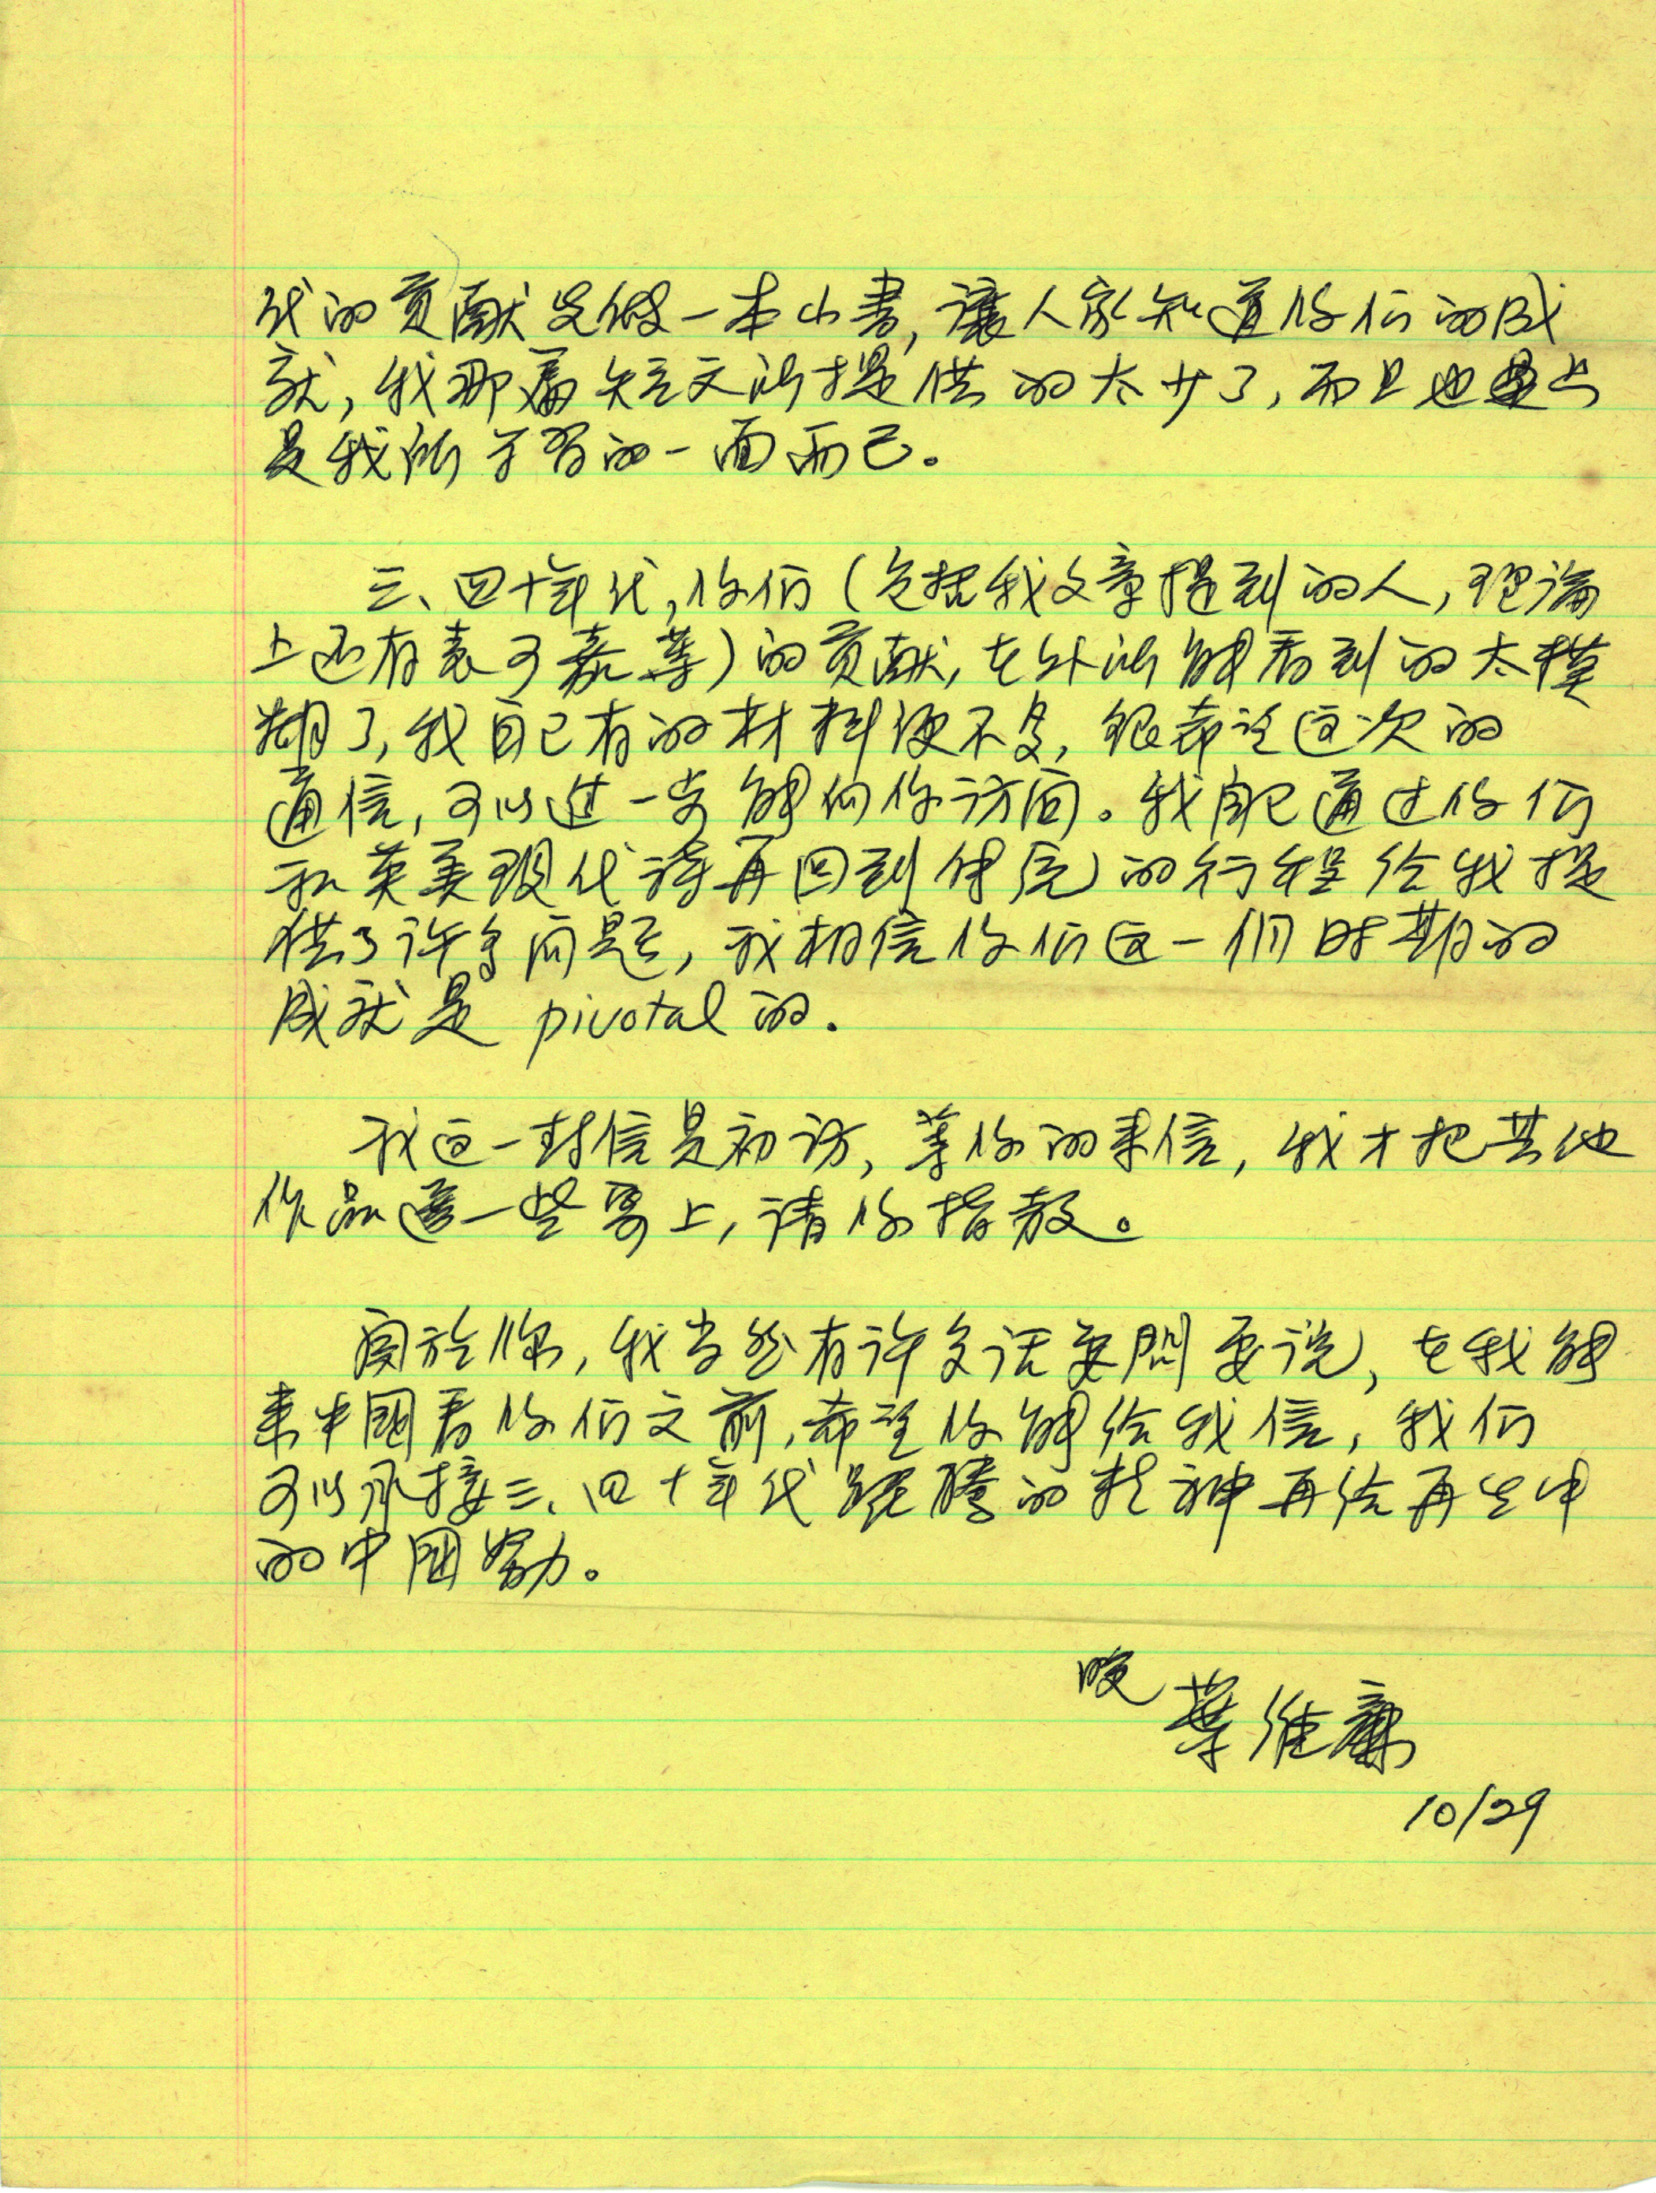 代的贡献先做一本小書，讓人家知道你们的成
就，我那篇短文所提供的太少了，而且也只
是我所学习的一面而已。
三、四十年代，你们（包括我文章提到的人，理論
上还有袁可嘉等）的贡献，在外所能看到的太模
糊了，我自己有的材料便不多，很希望这次的
通信，可以进一步能向你访问。我自己通过你们
和英美现代诗再回到传统的行程给我提
供了许多问题，我相信你们这一个时期的
成就是 pivotal 的.
我这一封信是初访，等你的来信，我才把其他
作品选一些寄上，请你指教。
関於你，我当然有许多话要問要说，在我能
来中國看你们之前，希望你能给我信，我们
可以承接三、四十年代躍騰的精神再给再生中
的中國努力。
晚 葉維廉
10/29